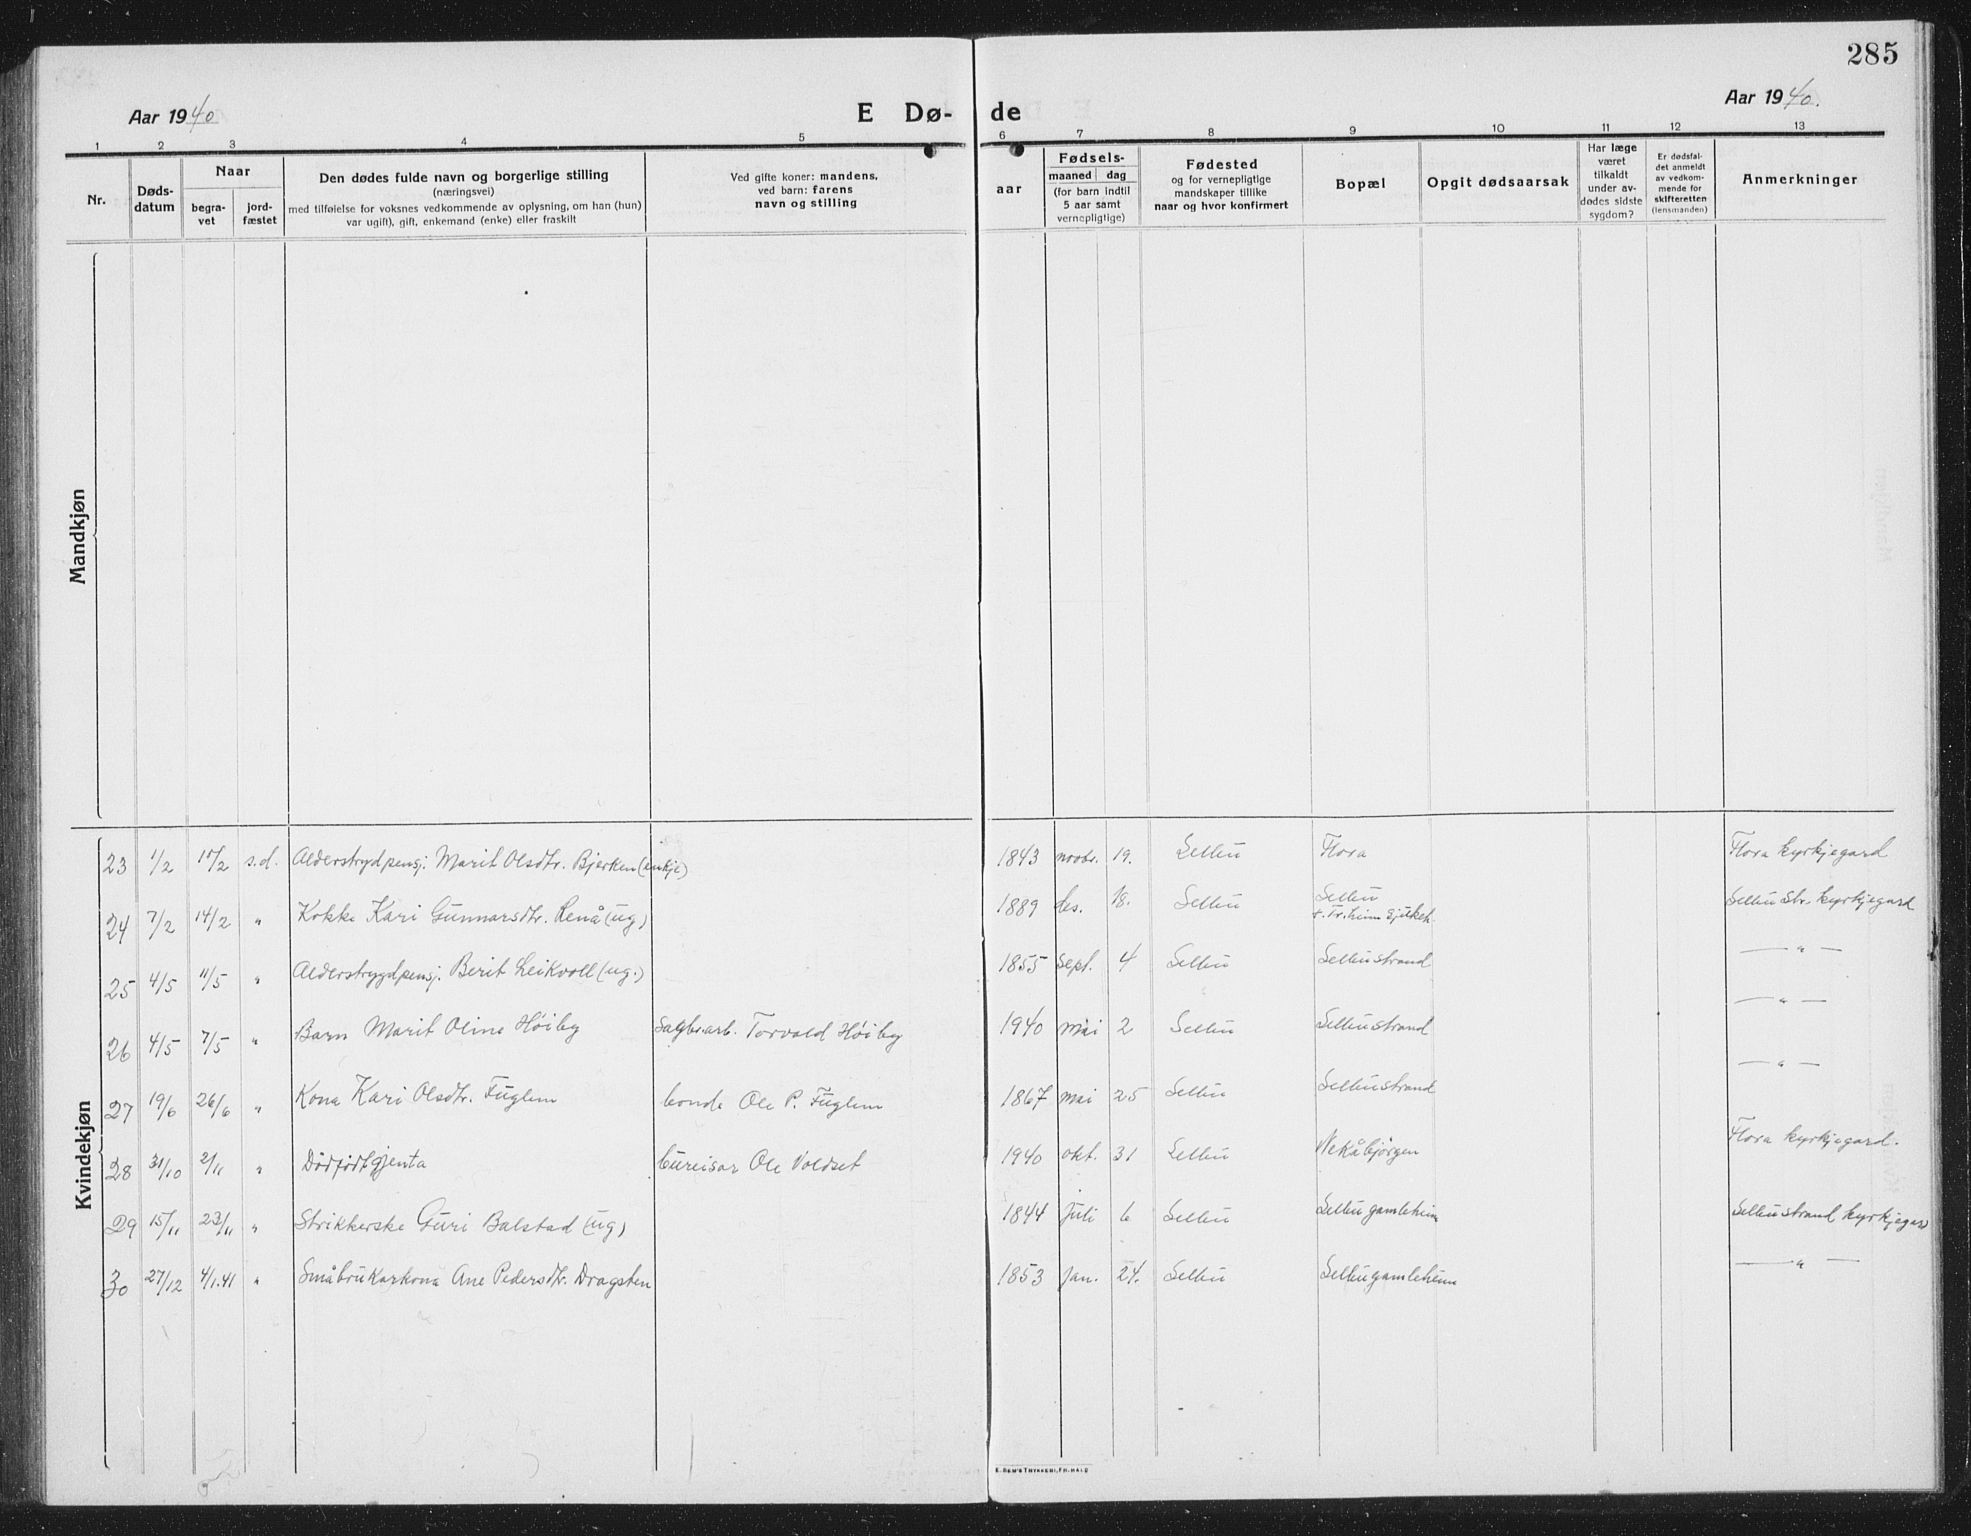 285
Aar 1940
E Dø-
de
Aar 1940.
1 2 3 4 5 6 7 8 9 10 11 12 13
Nr.
Døds-
datum
Naar
begra-
vet
jord-
fæstet
Den dødes fulde navn og borgerlige stilling
(næringsvei)
med tilføielse for voksnes vedkommende av oplysning, om han (hun)
var ugift), gift, enkemand (enke) eller fraskilt
Ved gifte koner: mandens,
ved barn: farens
navn og stilling
aar
Fødsels-
maaned dag
(for barn indtil
5 aar samt
vernepligtige)
Fødested
og for vernepligtige
mandskaper tillike
naar og hvor konfirmert
Bopæl
Opgit dødsaarsak
Har læge
været
tilkaldt
under av-
dødes sidste
sygdom?
Er dødsfal-
det anmeldt
av vedkom-
mende for
skifteretten
(lensmanden)
Anmerkninger
Mandkjøn
Kvindekjøn
23 1/2 17/2 s.d. Alderstrydpensj. Marit Olsdtr. Bjerken (enkje) 1843 novbr. 19. Selbu Flora Flora kyrkjegard
24 7/2 14/2 " Kokke Kari Gunnarsdtr. Renå (ug) 1889 des. 18. Selbu Selbu Selbu Str. kyrkjegard
25 4/5 11/5 " Alderstrygdpensj. Berit Leikvoll (ug.) 1855 sept. 4 Selbu Selbustrand — " —
26 4/5 7/5 " Barn Marit Oline Høiby Sagbr.arb. Torvald Høiby 1940 mai 2 Selbu Selbustrand — " —
27 19/6 26/6 " Kona Kari Olsdtr. Fuglem bonde Ole P. Fuglem 1867 mai 25 Selbu Selbustrand — " —
28 31/10 2/11 " Dødfødt gjenta bureisar Ole Voldset 1940 okt. 31 Selbu Nekåbjørgen Flora kyrkjegard.
29 15/11 23/11 " Strikkerske Guri Balstad (ug) 1844 juli 6 Selbu Selbu gamleheim Selbustrand kyrkjegard
30 27/12 4/1.41 " Småbrukarkona Ane Pedersdtr. Dragsten 1853 jan. 24. Selbu Selbu gamleheim — " —
E. SEM'S TRYKKERI, FR. HALD